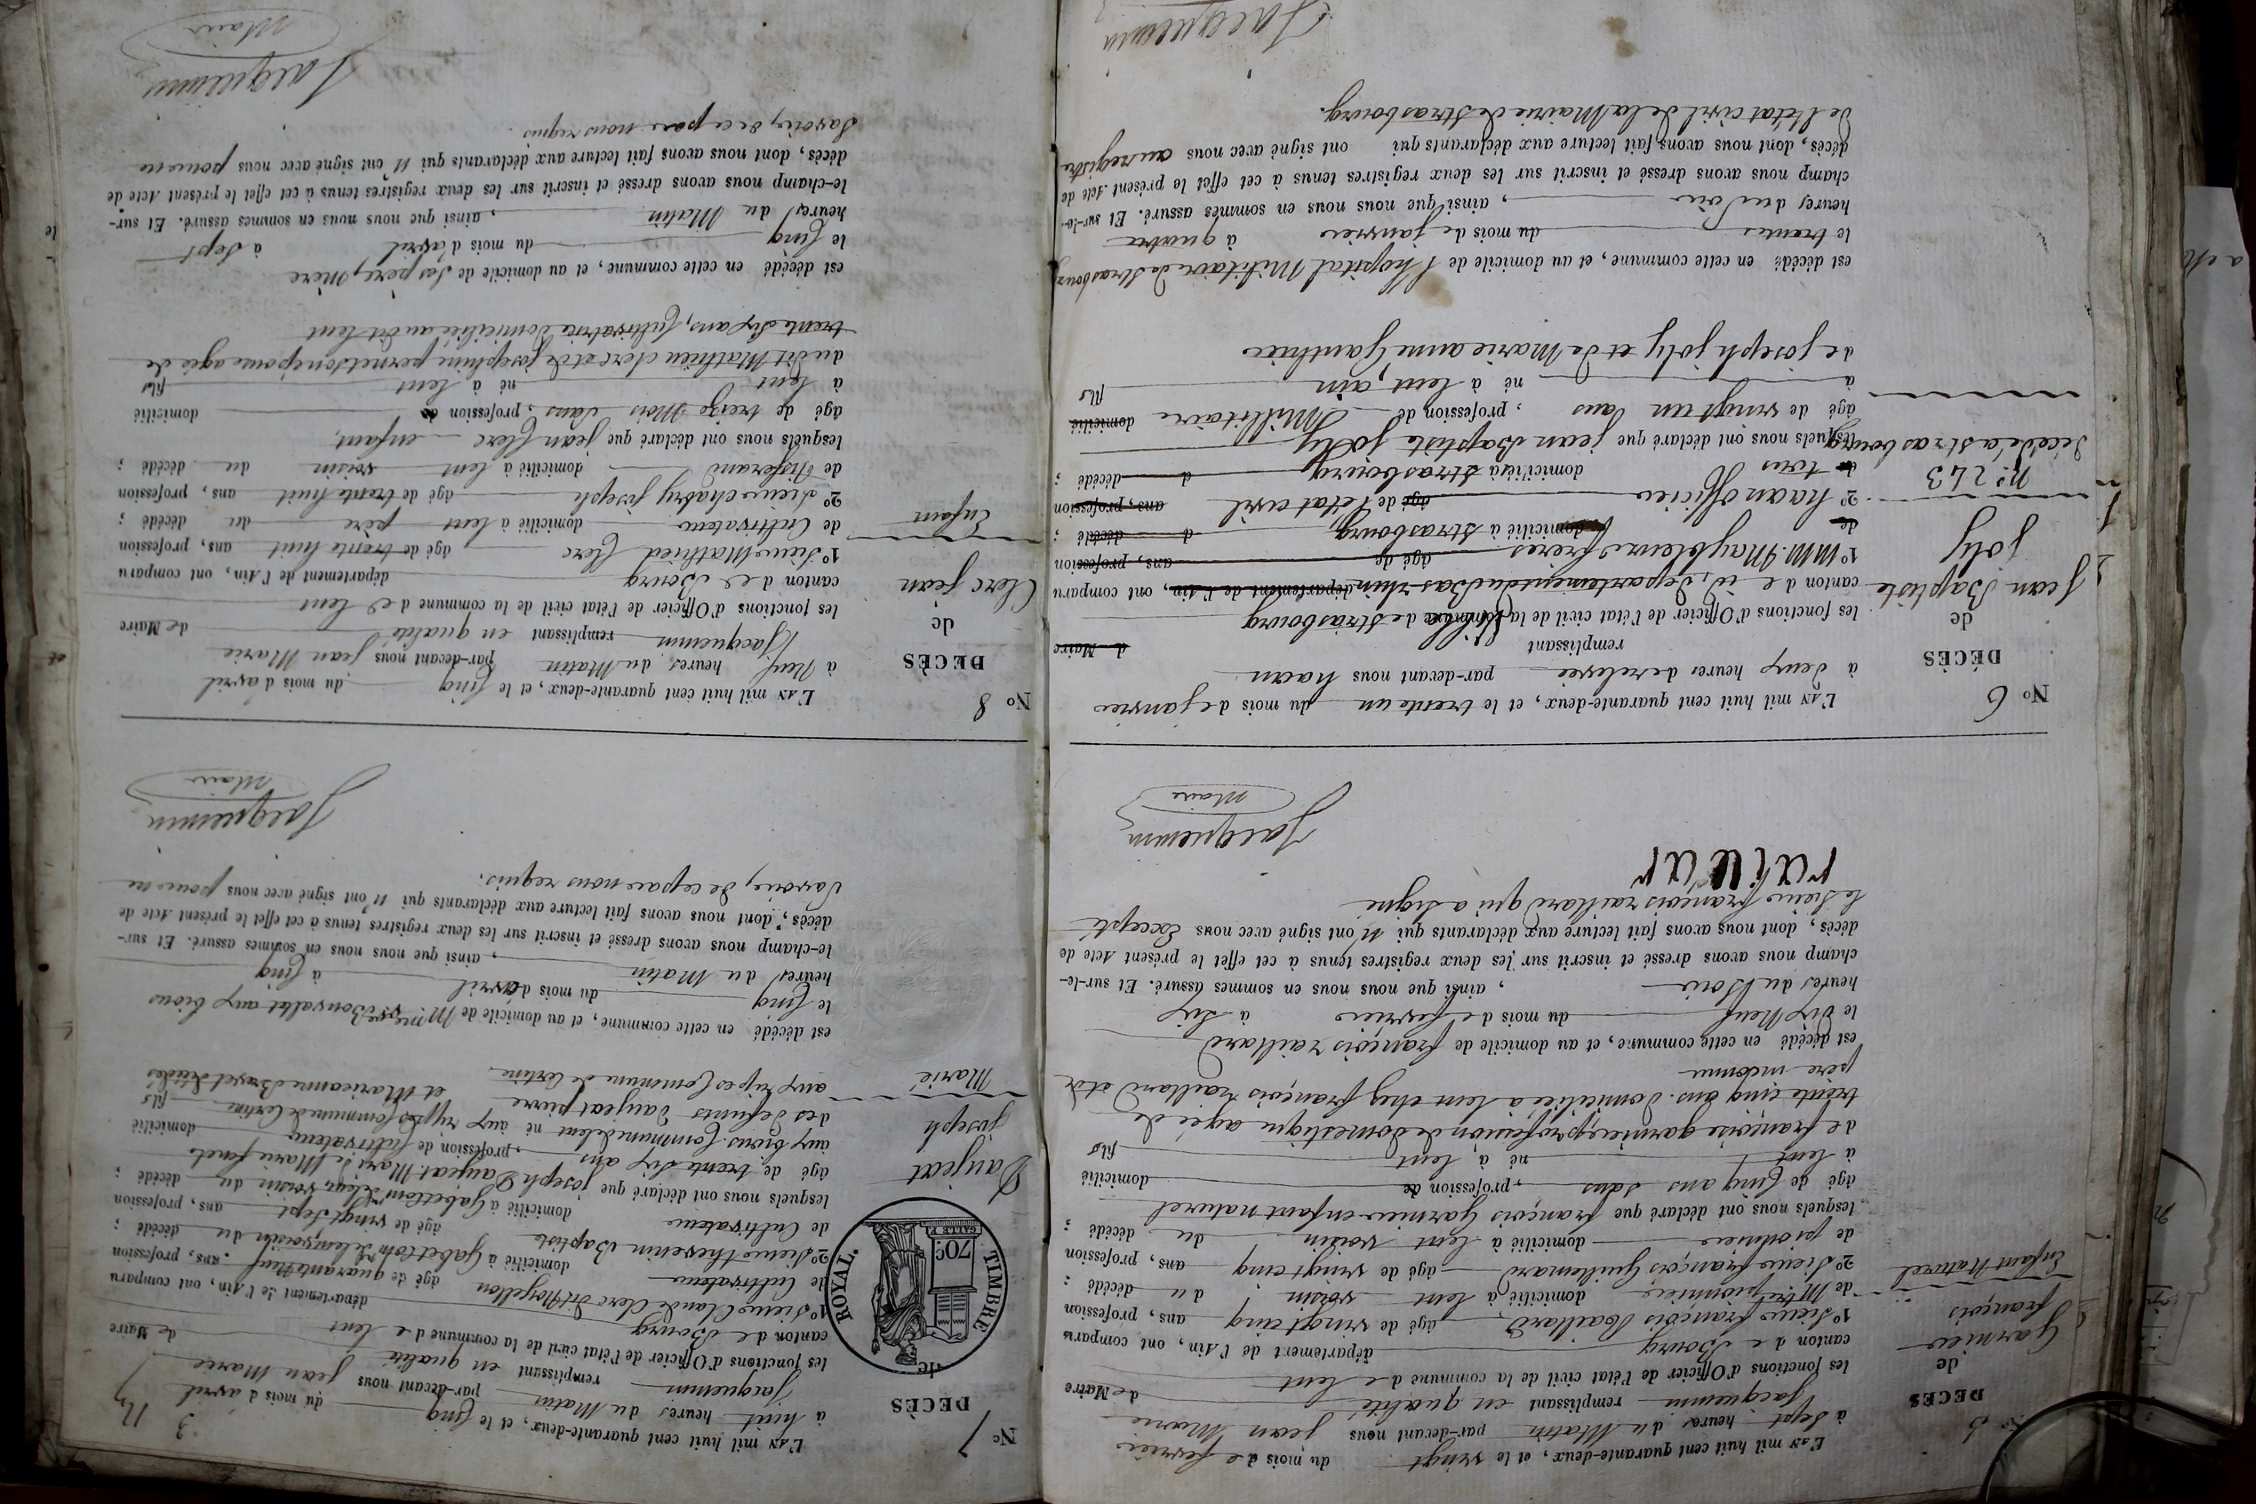 No 5
DÉCÈS
de
Garnier
françois
Enfant Naturel
L'AN mil huit cent quarante-deux, et le vingt du mois de fevrier
à sept heures du Matin par-devant nous jean Marie
Jacquemin remplissant en qualité de Maire
les fonctions d'Officier de l'état civil de la commune de lent
canton de Bourg département de l'Ain, ont comparu
1o Sieur françois Raillard âgé de vingt cinq ans, profession
de domicilié à lent voisin du décédé ;
2o Sieur françois Guillemard âgé de vingt cinq ans, profession
de domicilié à lent voisin du décédé ;
lesquels nous ont déclaré que françois Garnier enfant naturel
âgé de Cinq ans Sans , profession de domicilié
à lent né à lent fils
de françoise garnier, profession de domestique agée de
trente cinq ans. domiciliée à lent chez françois raillard et de
père inconnu
est décédé en cette commune, et au domicile de françois raillard
le dix Neuf du mois de fevrier à Six
heures du Soir , ainsi que nous nous en sommes assuré. Et sur-le-
champ nous avons dressé et inscrit sur les deux registres tenus à cet effet le présent Acte de
décès, dont nous avons fait lecture aux déclarants qui n' ont signé avec nous Excepté
le Sieur françois raillard qui a Signé
Jacquemin
Maire
No 6
DÉCÈS
de
Jean Baptiste
joly
no 243
décédé a strasbourg
L'AN mil huit cent quarante-deux, et le trente un du mois de janvier
à deux heures de relevée par-devant nous haan
remplissant d Maire
les fonctions d'Officier de l'état civil de la commune de Strasbourg
canton de id, departement du Bas-rhin département de l'Ain, ont comparu
1o MM. freres âgé de ans, profession
de domicilié à Strasbourg d décédé ;
2o haan officier âgé de l'état civil ans, profession
de tous domicilié à Strasbourg d décédé ;
lesquels nous ont déclaré que jean Baptiste joly
âgé de vingt un ans , profession de Militaire domicilié
à né à lent, ain fils
de joseph joly et de Marie anne Gauthier
est décédé en cette commune, et au domicile de l'hopital Militaire de Strasbourg
le trente du mois de janvier à quatre
heures du Soir , ainsi que nous nous en sommes assuré. Et sur-le-
champ nous avons dressé et inscrit sur les deux registres tenus à cet effet le présent Acte de
décès, dont nous avons fait lecture aux déclarants qui ont signé avec nous au registre
de l'état civil de la Mairie de Strasbourg.
Jacquemin
No 7
DÉCÈS
de
TIMBRE ROYAL.
70c.
Daujeat
joseph
Marié
L'AN mil huit cent quarante-deux, et le Cinq du mois d'avril
à huit heures du Matin par-devant nous jean Marie
Jacquemin remplissant en qualité de Maire
les fonctions d'Officier de l'état civil de la commune de lent
canton de Bourg département de l'Ain, ont comparu
1o Sieur Claude Clerc dit âgé de quarante Neuf ans, profession
de Cultivateur domicilié à voisin du décédé ;
2o Sieur thevenin Baptiste âgé de vingt Sept ans, profession
de Cultivateur domicilié à voisin du décédé ;
lesquels nous ont déclaré que joseph Daujeat
âgé de trente Six ans , profession de Cultivateur domicilié
aux bious. Commune de lent né aux Commune de Certine fils
des defunts daujeat pierre et Marieanne Buget décédés
aux rippes Commune de Certine
est décédé en cette commune, et au domicile de Bonvalat aux bious
le Cinq du mois d'avril à Cinq
heures du Matin , ainsi que nous nous en sommes assuré. Et sur-
le-champ nous avons dressé et inscrit sur les deux registres tenus à cet effet le présent Acte de
décès, dont nous avons fait lecture aux déclarants qui n'ont signé avec nous pour ne
Savoir, de ce par nous requis.
Jacquemin
Maire
No 8
DÉCÈS
de
Clerc jean
Enfant
L'AN mil huit cent quarante-deux, et le Cinq du mois d'avril
à Neuf heures du Matin par-devant nous jean Marie
Jacquemin remplissant en qualité de Maire
les fonctions d'Officier de l'état civil de la commune de lent
canton de Bourg département de l'Ain, ont comparu
1o Sieur Mathieu Clerc âgé de trente huit ans, profession
de Cultivateur domicilié à lent père du décédé ;
2o Sieur chabry joseph âgé de trente huit ans, profession
de tisserand domicilié à lent voisin du décédé ;
lesquels nous ont déclaré que jean Clerc enfant,
âgé de treize Mois Sans , profession de domicilié
à lent né à lent fils
du dit Mathieu clerc et de josephine pernet son épouse agée de
trente Six ans, Cultivatrice domiciliée au dit lent
est décédé en cette commune, et au domicile de Ses père, mère
le Cinq du mois d'avril à Sept
heures du Matin , ainsi que nous nous en sommes assuré. Et sur-
le-champ nous avons dressé et inscrit sur les deux registres tenus à cet effet le présent Acte de
décès, dont nous avons fait lecture aux déclarants qui n'ont signé avec nous pour ne
Savoir, de ce par nous requis.
Jacquemin
Maire